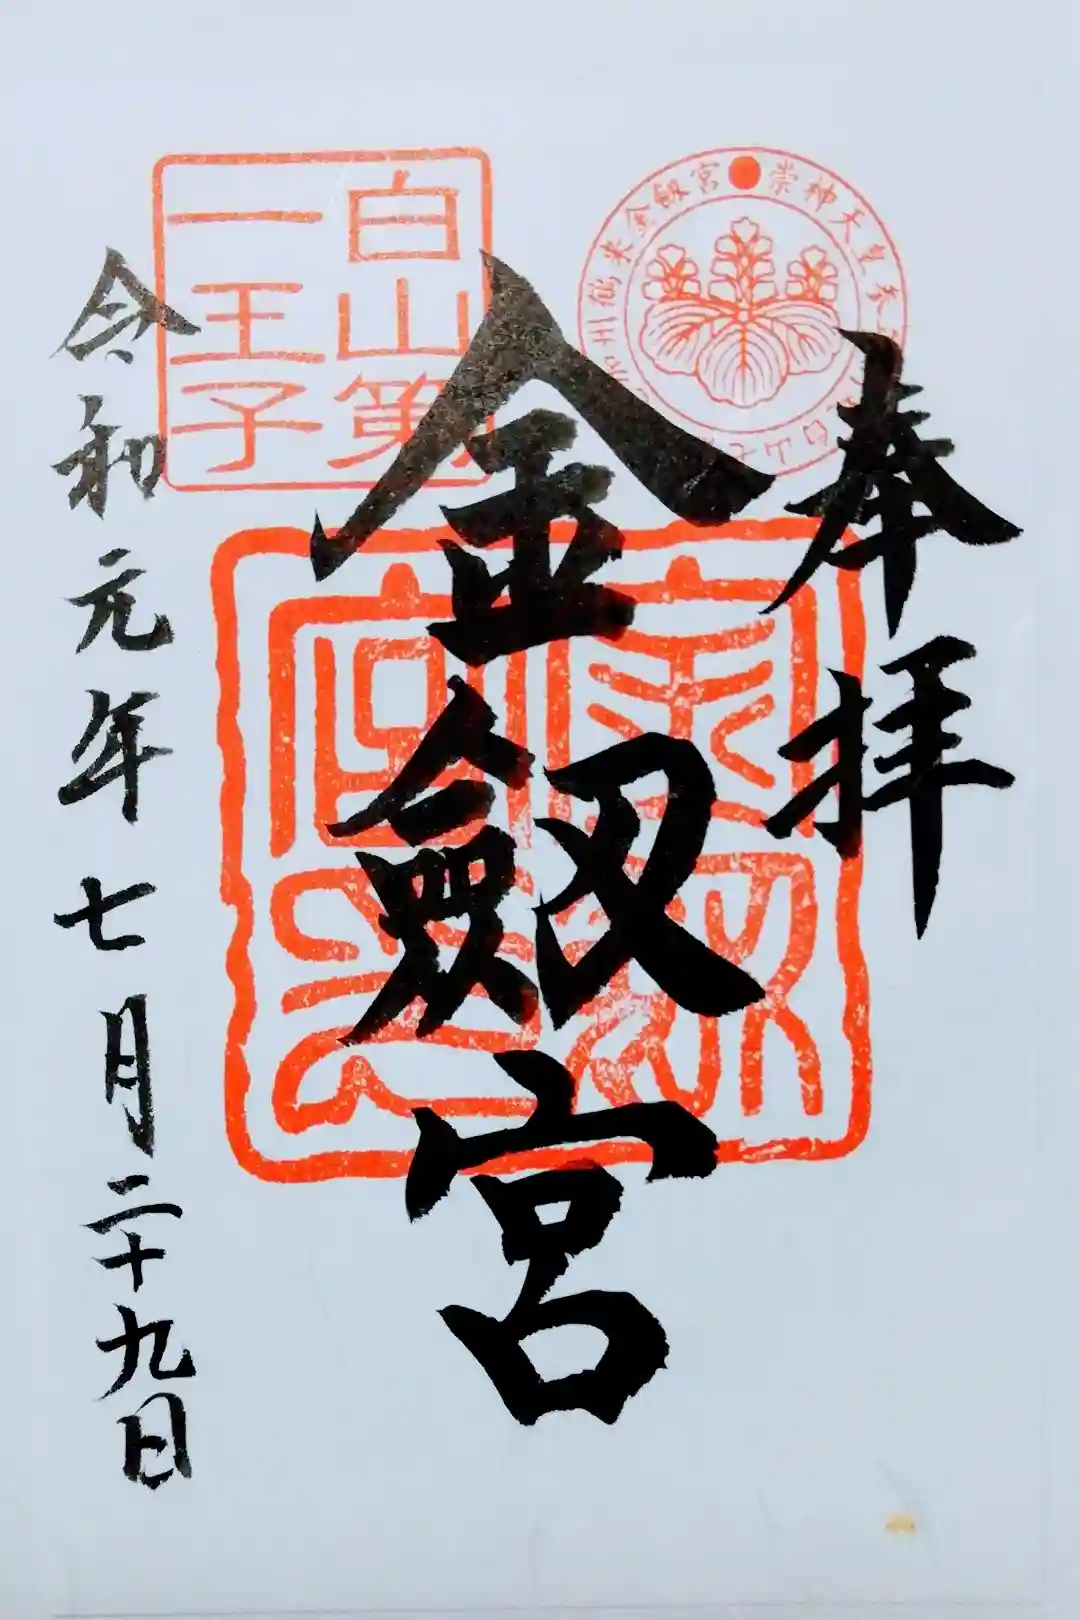 奉拝
金劔宮
令和元年七月二十九日
白山第
一王子
崇神天皇
金劔宮